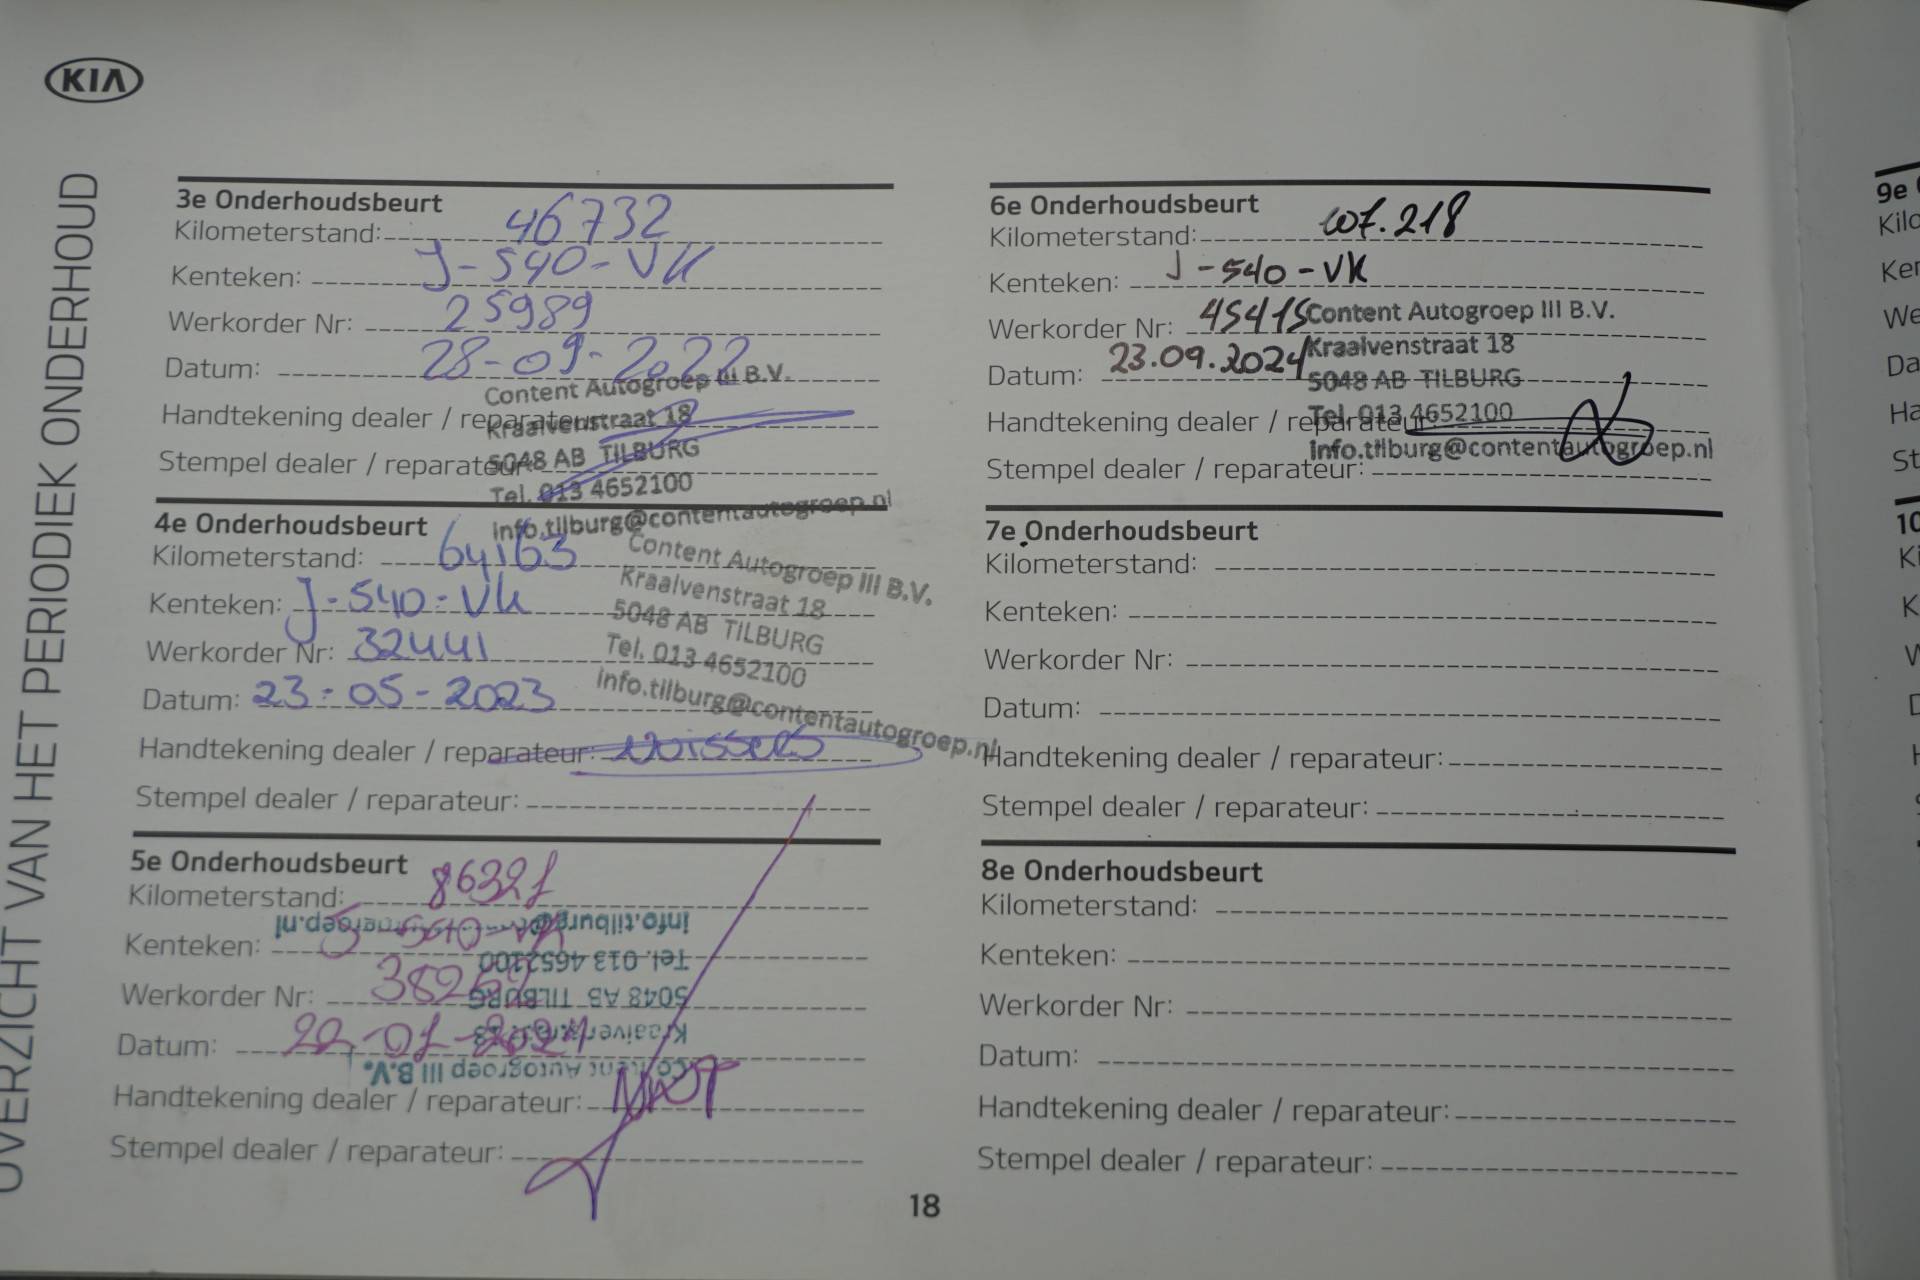 KIA
OVERZICHT VAN HET PERIODIEK ONDERHOUD
3e Onderhoudsbeurt
Kilometerstand: 46732
Kenteken: J-540-VK
Werkorder Nr: 25989
Datum: 28-09-2022
Content Autogroep III B.V.
Handtekening dealer / reparateur:
Kraalvenstraat 18
5048 AB TILBURG
Stempel dealer / reparateur:
Tel. 013 4652100
info.tilburg@contentautogroep.nl
4e Onderhoudsbeurt
Kilometerstand: 64163
Kenteken: J-540-VK
Werkorder Nr: 32441
Datum: 23-05-2023
Content Autogroep III B.V.
Kraalvenstraat 18
5048 AB TILBURG
Tel. 013 4652100
info.tilburg@contentautogroep.nl
Handtekening dealer / reparateur:
Stempel dealer / reparateur:
5e Onderhoudsbeurt
Kilometerstand: 86321
Kenteken: J-540-VK
Werkorder Nr:
Datum: 22-01-2024
Content Autogroep III B.V.
Kraalvenstraat 18
5048 AB TILBURG
Tel. 013 4652100
info.tilburg@contentautogroep.nl
Handtekening dealer / reparateur:
Stempel dealer / reparateur:
6e Onderhoudsbeurt
Kilometerstand: 107.218
Kenteken: J-540-VK
Werkorder Nr: 45415
Datum: 23.09.2024
Content Autogroep III B.V.
Kraalvenstraat 18
5048 AB TILBURG
Tel. 013 4652100
info.tilburg@contentautogroep.nl
Handtekening dealer / reparateur:
Stempel dealer / reparateur:
7e Onderhoudsbeurt
Kilometerstand:
Kenteken:
Werkorder Nr:
Datum:
Handtekening dealer / reparateur:
Stempel dealer / reparateur:
8e Onderhoudsbeurt
Kilometerstand:
Kenteken:
Werkorder Nr:
Datum:
Handtekening dealer / reparateur:
Stempel dealer / reparateur:
18
9e
10